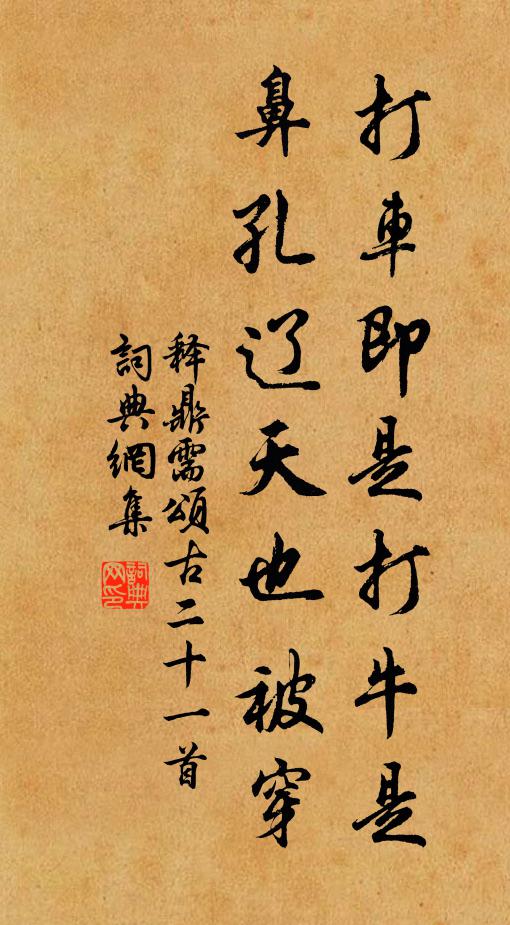 打車即是打牛是
鼻孔辽天也被穿
释鼎需頌古二十一首
詞典網集
詞典网印